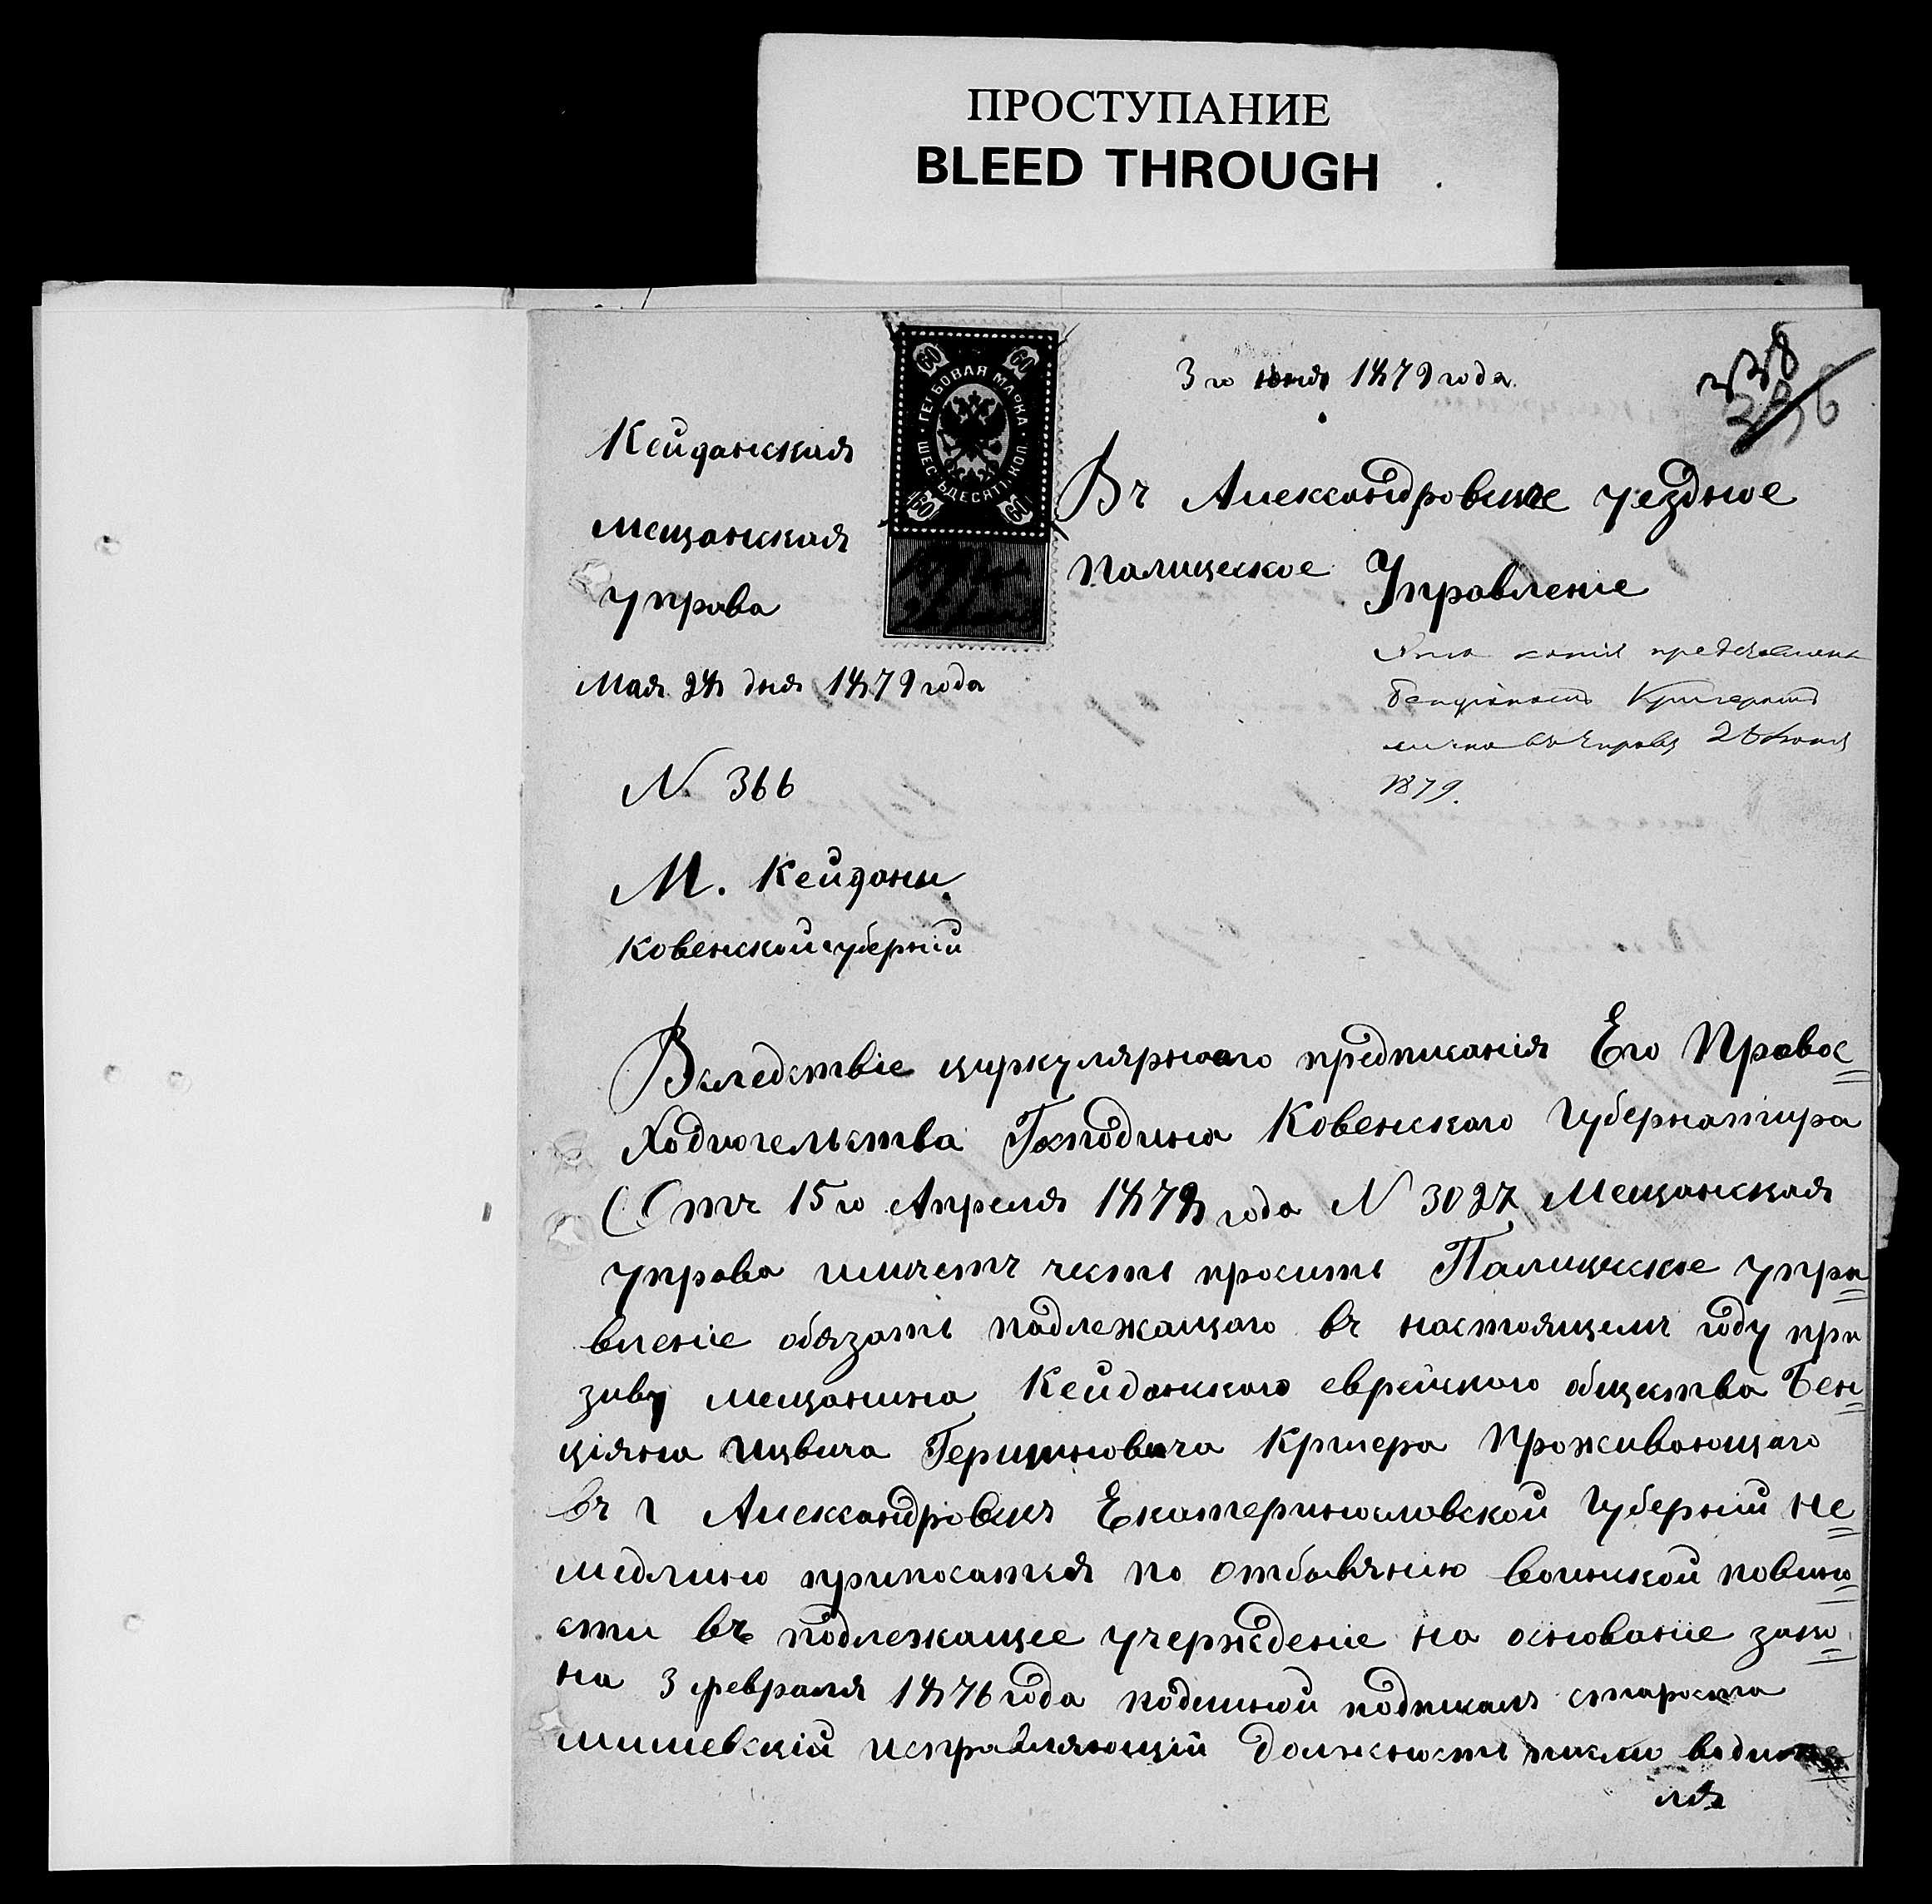 ПРОСТУПАНИЕ
BLEED THROUGH
338
336
3 го июня 1879 года.
ГЕРБОВАЯ МАРКА
ШЕСТЬДЕСЯТЪ КОП
60 60
60 60
Кейданская
мещанская
управа
Мая 28 дня 1879 года
N. 366
М. Кейданы
Ковенской губерніи
Въ Александровское уездное
Палицеское Управленіе
копія представлена
Кригеромъ
1879.
Вследствіе циркулярнаго предписанія Его Правос=
ходительства Господина Ковенскаго Губернатира
Отъ 15 го Апреля 1878 года N 3027 Мещанская
управа имѣетъ честь просить Палицеское упра=
вленіе обязать подлежащаго въ настоящемъ году при
зиву мещанина Кейданскаго еврейскаго общества Бен=
ціяна Ицвича Гершиновича Кригера Проживающаго
въ г Александровскъ Екатеринославской Губерніи не=
медлино приписатся по отбывянію воинской повино=
сти въ подлежащее учережденіе на основаніе зако=
на 3 февраля 1876 года подлиной подписалъ староста
исправляющій должность писмо водите
ля